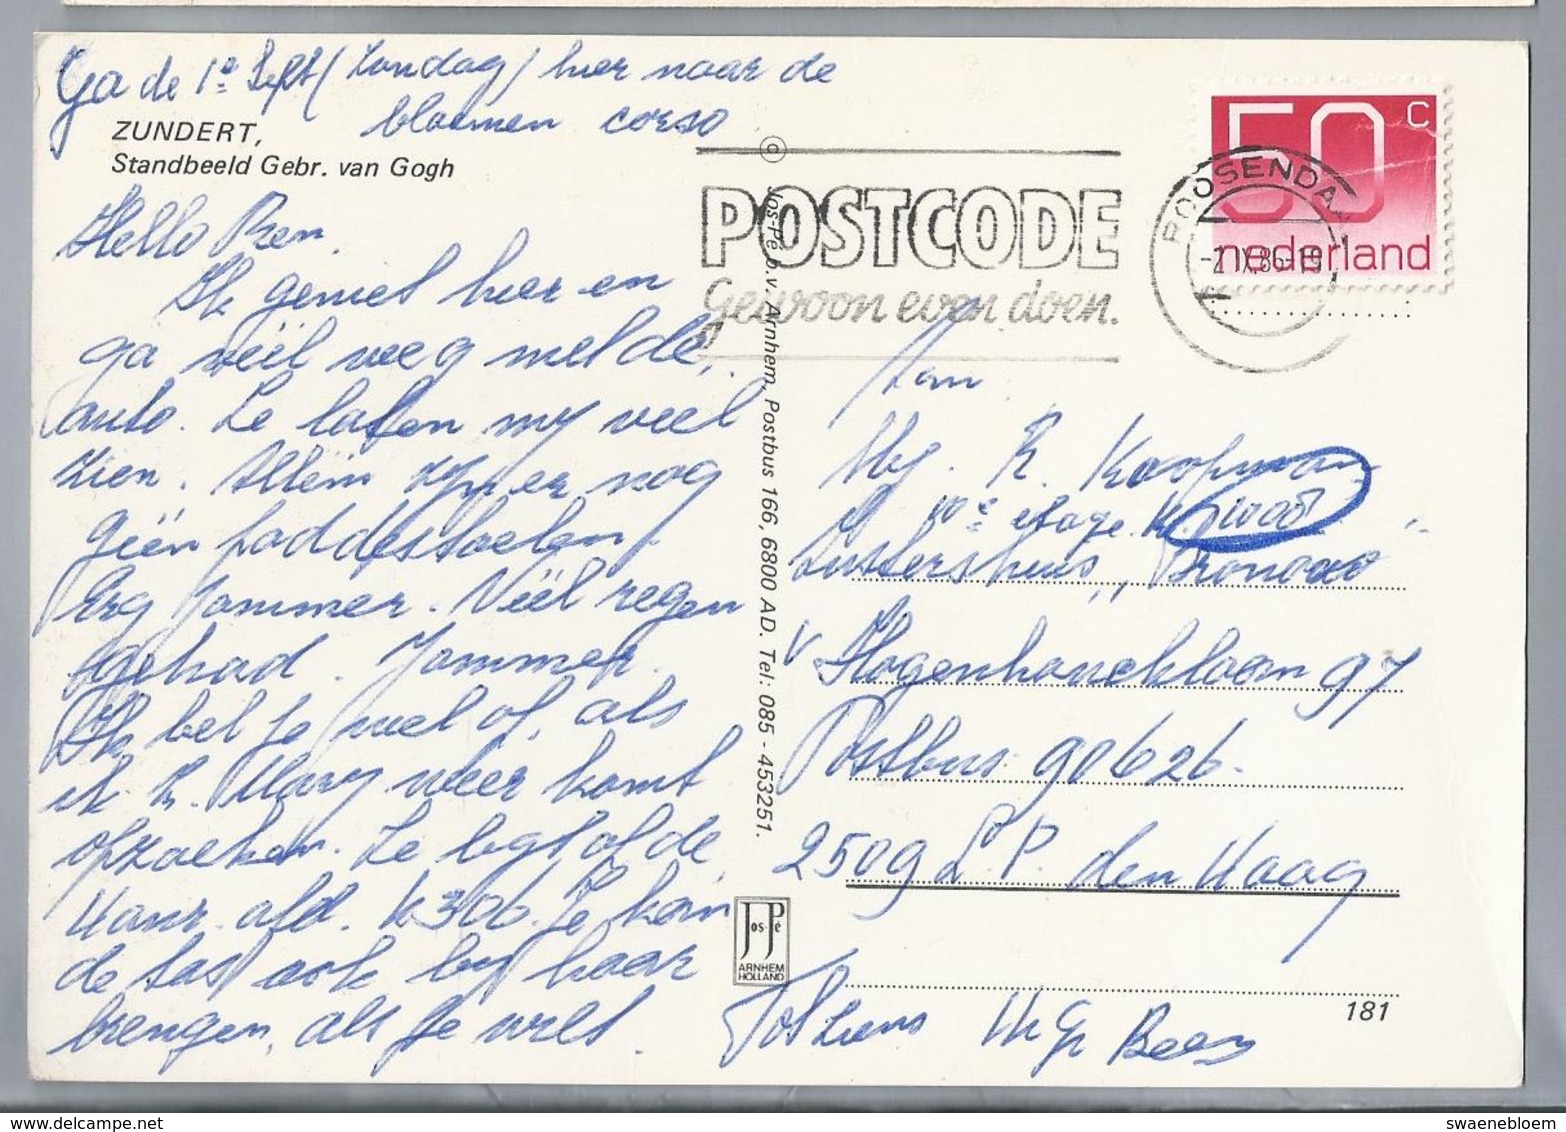 Ga de 1e Sept (Zondag) hier naar de
bloemen corso
ZUNDERT,
Standbeeld Gebr. van Gogh
Hello Ren.
Ik geniet hier en
ga véél weg met de
auto. Ze laten my veel
zien. Alléén zyn er nog
géén paddestoelen.
Erg jammer. Véél regen
gehad. Jammer.
Ik bel je wel op, als
ik Mary weer komt
opzoeken. Ze ligt op de
afd. K306. Je kan
de tas ook by haar
brengen, als je wilt.
© Jos-Pé b.v. Arnhem, Postbus 166, 6800 AD. Tel: 085 - 453251.
Jos-Pé
ARNHEM
HOLLAND
POSTCODE
Gewoon even doen.
ROOSENDAAL
-2.IX.86-19
50 c
nederland
Aan
R. Koopman
10e etage K 1008
Zustershuis „Bronovo"
v Hogenhoucklaan 97
Postbus 90626.
2509 L.P. den Haag
181
Tot ziens